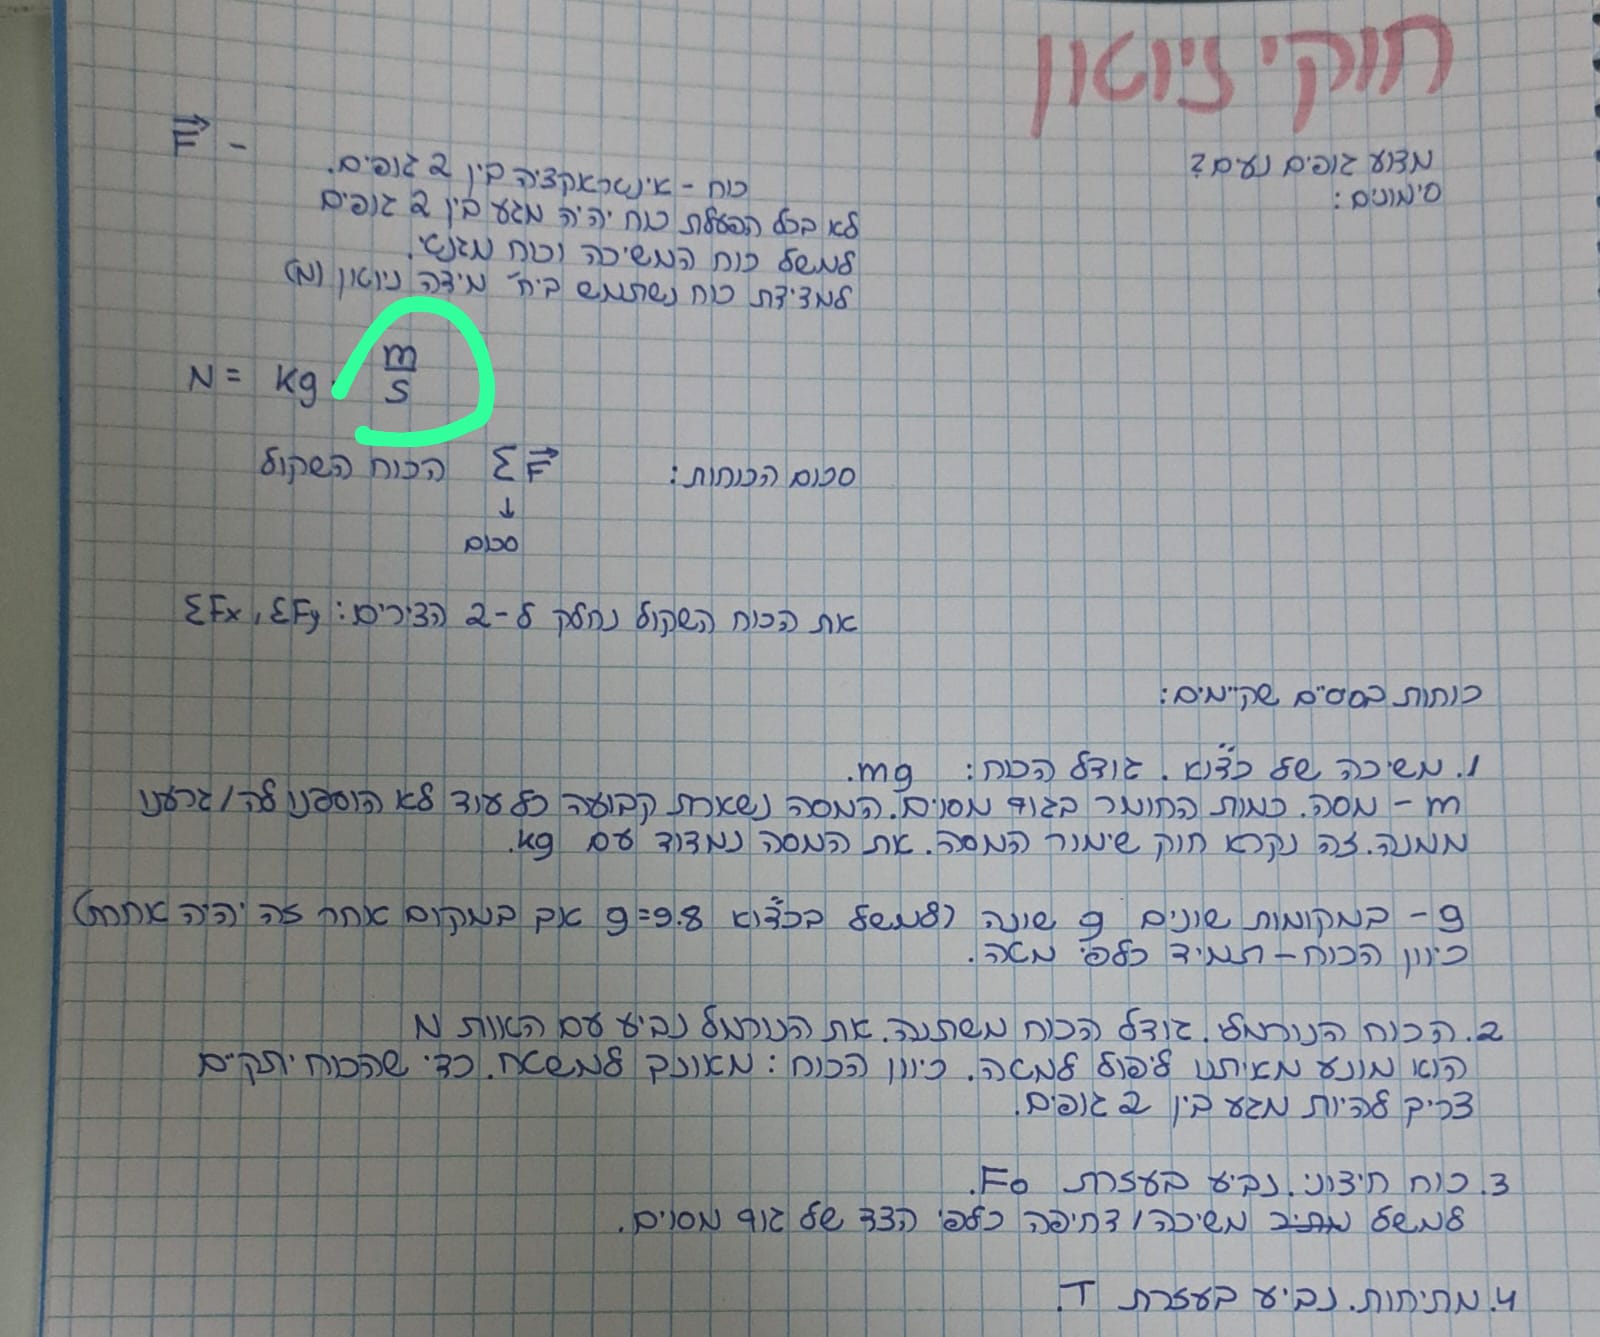 חוקי ניוטון
מדוע גופים נעים?
סימונים:
F -
כוח - אינטראקציה בין 2 גופים.
לא בכל הפעלת כוח יהיה מגע בין 2 גופים
למשל כוח המשיכה וכוח מגנטי.
למדידת כוח נשתמש ביח' מידה ניוטון (N)
N = kg · m/s
סכום הכוחות: ΣF הכוח השקול
↓
סכום
את הכוח השקול נחלק ל-2 הצירים: ΣFx, ΣFy
כוחות בסיסיים שקיימים:
1. משיכה של כדו"א. גודל הכוח: mg.
m - מסה. כמות החומר בגוף מסוים. המסה נשארת קבועה כל עוד לא הוספנו לה/גרענו
ממנה. זה נקרא חוק שימור המסה. את המסה נמדוד עם kg.
g - במקומות שונים g שונה (למשל בכדו"א g=9.8 אך במקום אחר זה יהיה אחרת)
כיוון הכוח - תמיד כלפי מטה.
2. הכוח הנורמלי. גודל הכוח משתנה. את הנורמל נביע עם האות N
הוא מונע מאיתנו ליפול למטה. כיוון הכוח: מאונך למשטח. כדי שהכוח יתקיים
צריך להיות מגע בין 2 גופים.
3. כוח חיצוני. נביע בעזרת Fo.
למשל משיכה/דחיפה כלפי הצד של גוף מסוים.
4. מתיחות. נביע בעזרת T.